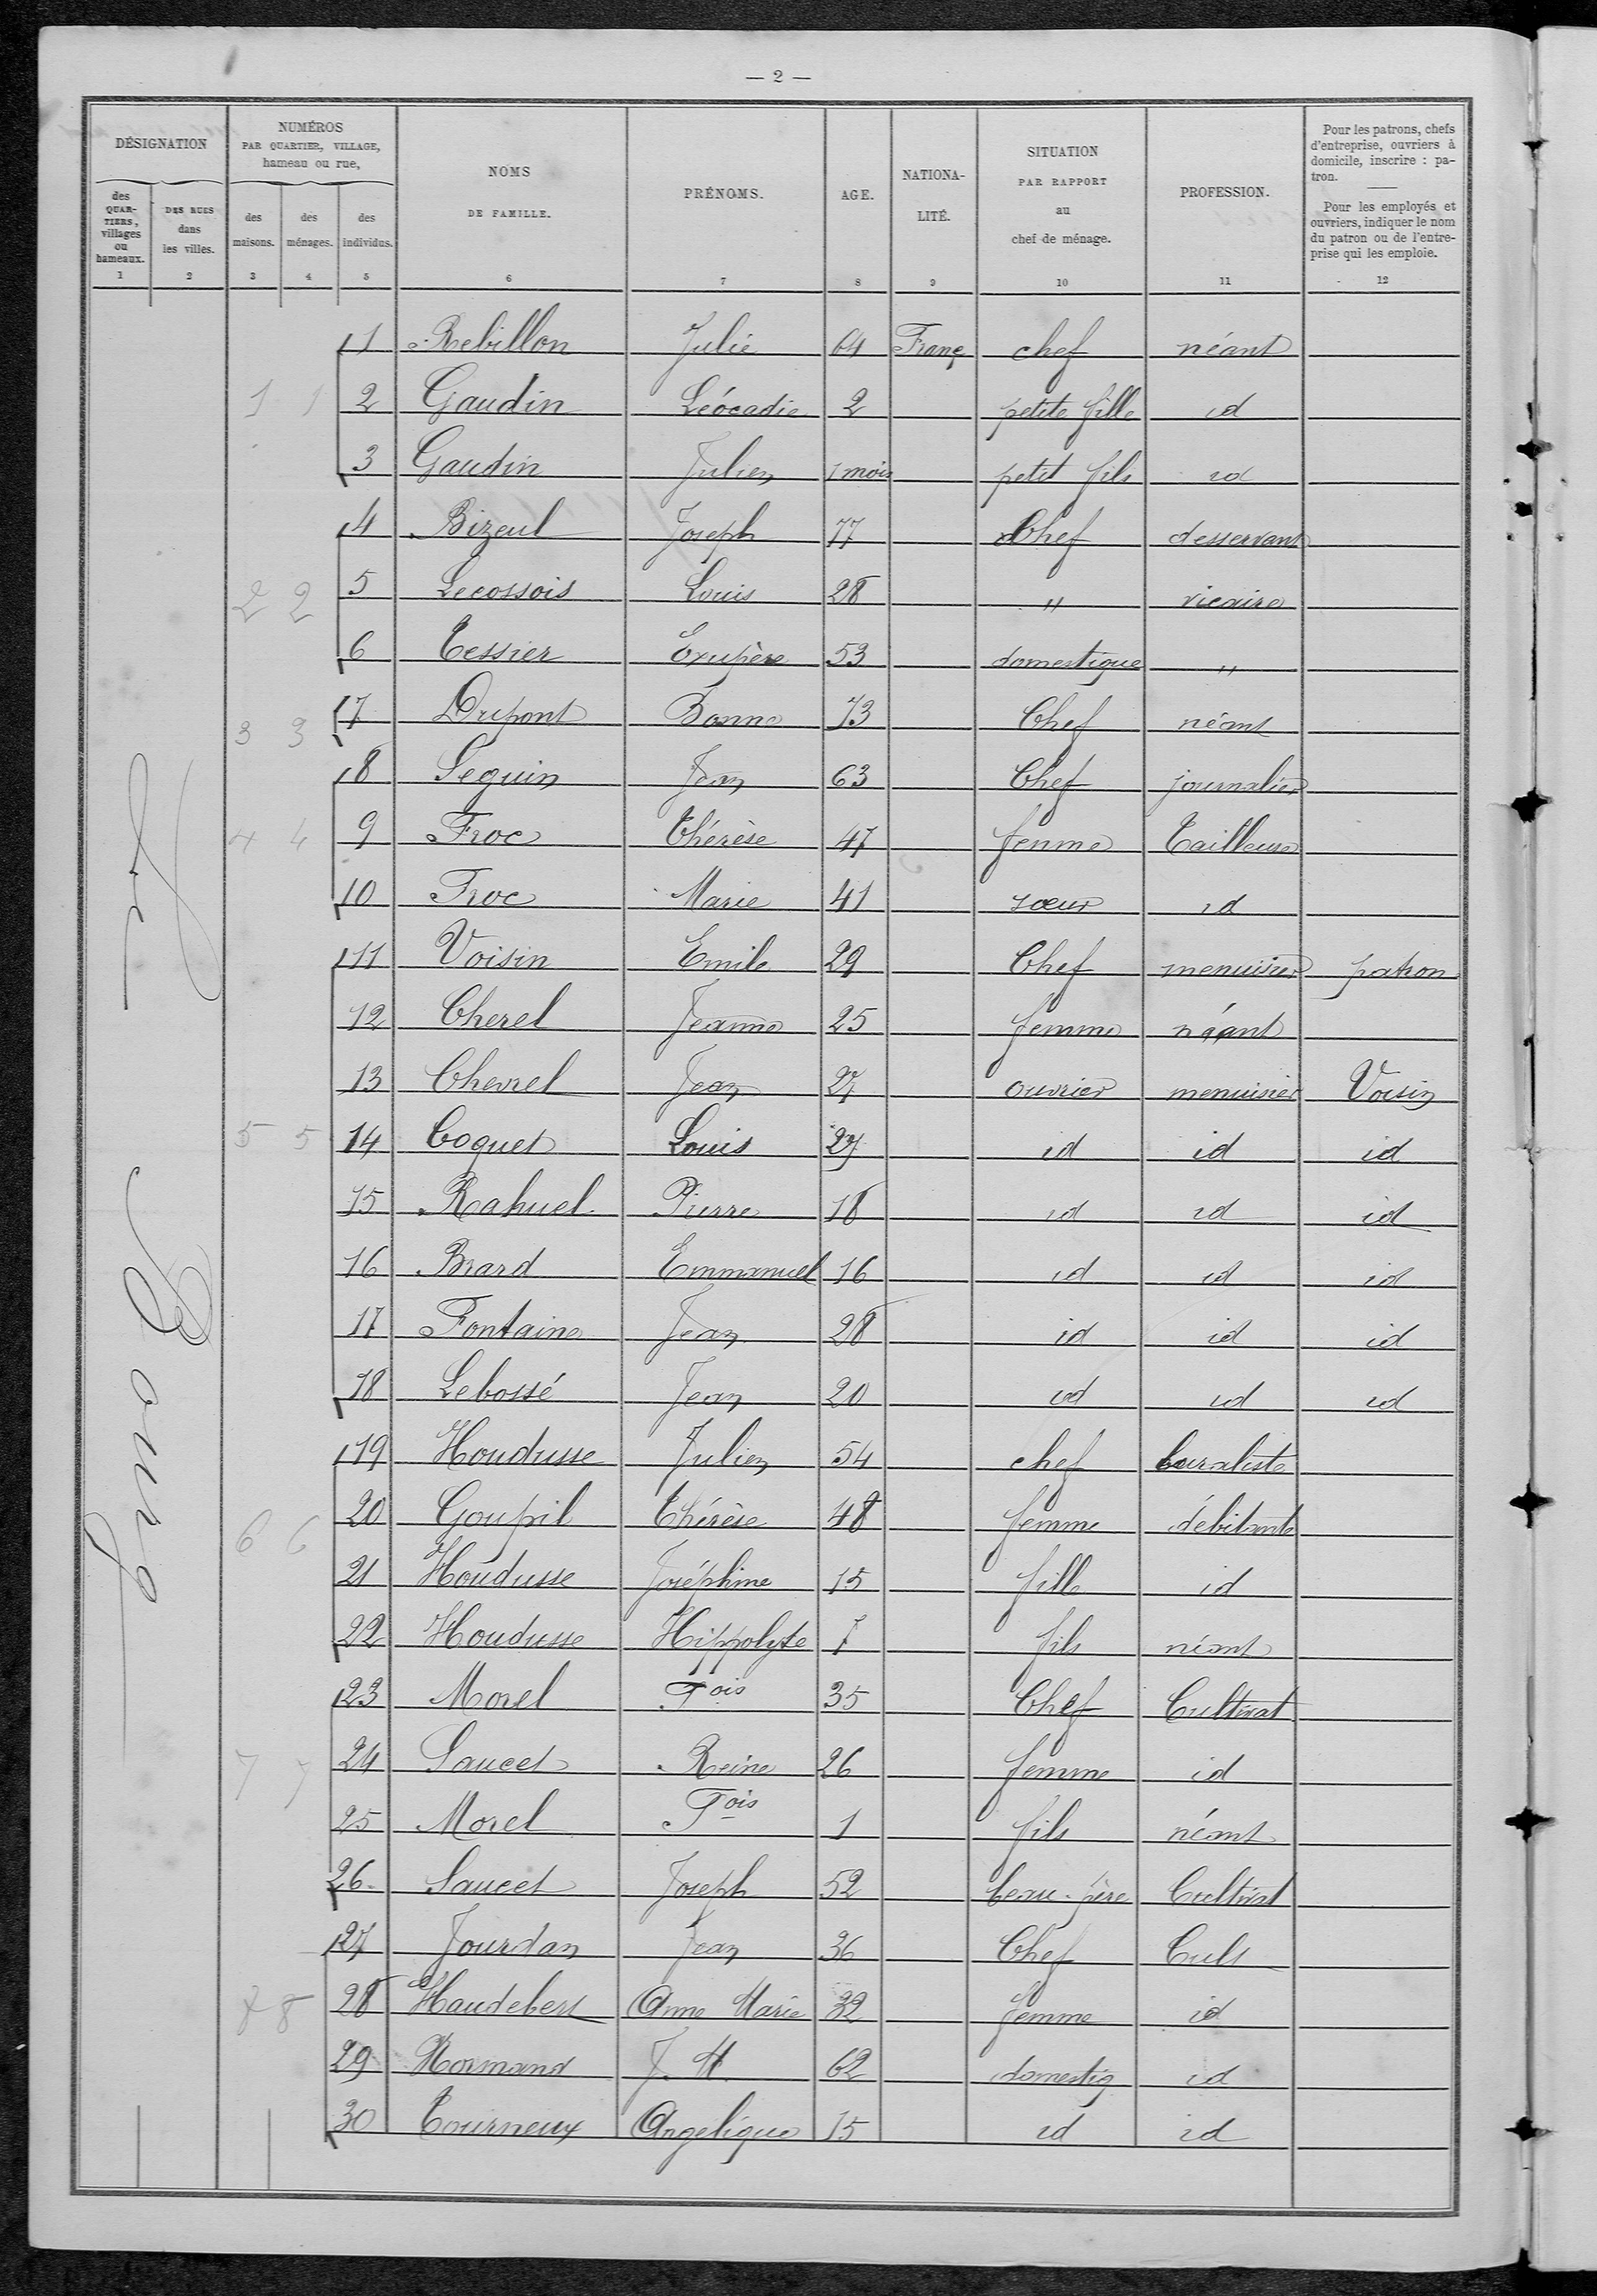 — 2 —
DÉSIGNATION
des QUARTIERS, villages ou hameaux.
1
DES RUES dans les villes.
2
NUMÉROS
PAR QUARTIER, VILLAGE,
hameau ou rue,
des maisons.
3
des ménages.
4
des individus.
5
NOMS
DE FAMILLE.
6
PRÉNOMS.
7
AGE.
8
NATIONA-
LITÉ.
9
SITUATION
PAR RAPPORT
au
chef de ménage.
10
PROFESSION.
11
Pour les patrons, chefs
d'entreprise, ouvriers à
domicile, inscrire : pa-
tron.
Pour les employés et
ouvriers, indiquer le nom
du patron ou de l'entre-
prise qui les emploie.
12
Bourg
1 Rebillon Julie 64 Franç chef néant
1 1 2 Gaudin Léocadie 2 petite fille id
3 Gaudin Julien 1 mois petit fils id
4 Bizeul Joseph 77 Chef desservant
2 2 5 Lecossois Louis 28 " vicaire
6 Tessier Exupère 53 domestique "
3 3 7 Dupont Bonne 73 Chef néant
8 Seguin Jean 63 Chef journalier
4 4 9 Froc Thérèse 47 femme Tailleuse
10 Froc Marie 41 sœur id
11 Voisin Emile 29 Chef menuisier patron
12 Cherel Jeanne 25 femme néant
13 Chevrel Jean 27 ouvrier menuisier Voisin
5 5 14 Coquet Louis 27 id id id
15 Rahuel Pierre 18 id id id
16 Brard Emmanuel 16 id id id
17 Fontaine Jean 28 id id id
18 Lebossé Jean 20 id id id
19 Houdusse Julien 54 chef buraliste
6 6 20 Goupil Thérèse 48 femme débitante
21 Houdusse Joséphine 15 fille id
22 Houdusse Hippolyte 7 fils néant
23 Morel Fois 35 Chef Cultivat
7 7 24 Saucet Reine 26 femme id
25 Morel Fois 1 fils néant
26 Saucet Joseph 52 beau-père Cultivat
27 Jourdan Jean 36 Chef Cult
8 8 28 Haudebert Anne Marie 32 femme id
29 Normand J. M. 62 domestiq id
30 Tourneux Angelique 15 id id